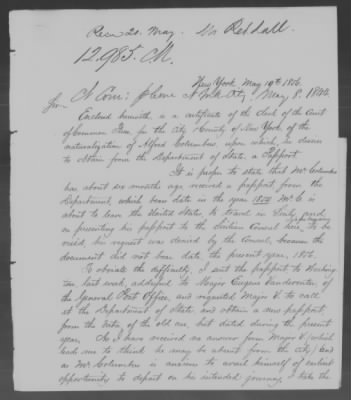 Recd 20. May.
12.985. CM.
New York May 19th 1856.
N York City May 8.
Enclosed herewith is a certificate of the Clerk of the Court
of Common Pleas for the City & County of New York, of the
naturalization of Alfred Columbus, upon which, he desires
to obtain from the Department of State, a Passport.
It is proper to state that Mr Columbus
has about six months ago received a passport from the
Department, which bears date in the year 1855. Mr C. is
about to leave the United States, to travel in Italy, and
on presenting his passport to the Sicilian Consul here, to be
visèd, his request was denied by the Consul, because the
document did not bear date the present year, 1856.
To obviate the difficulty, I sent the passport to Washing-
ton, last week, addressed to Major Eugene Vandeventer of
the General Post Office, and requested Major V. to call
at the Department of State and obtain a new passport
from the data of the old one, but dated during the present
year. As I have received no answer from Major V (which
leads me to think he may be absent from the City) and
as Mr Columbus is anxious to avail himself of earliest
opportunity to depart on his intended journey I take the